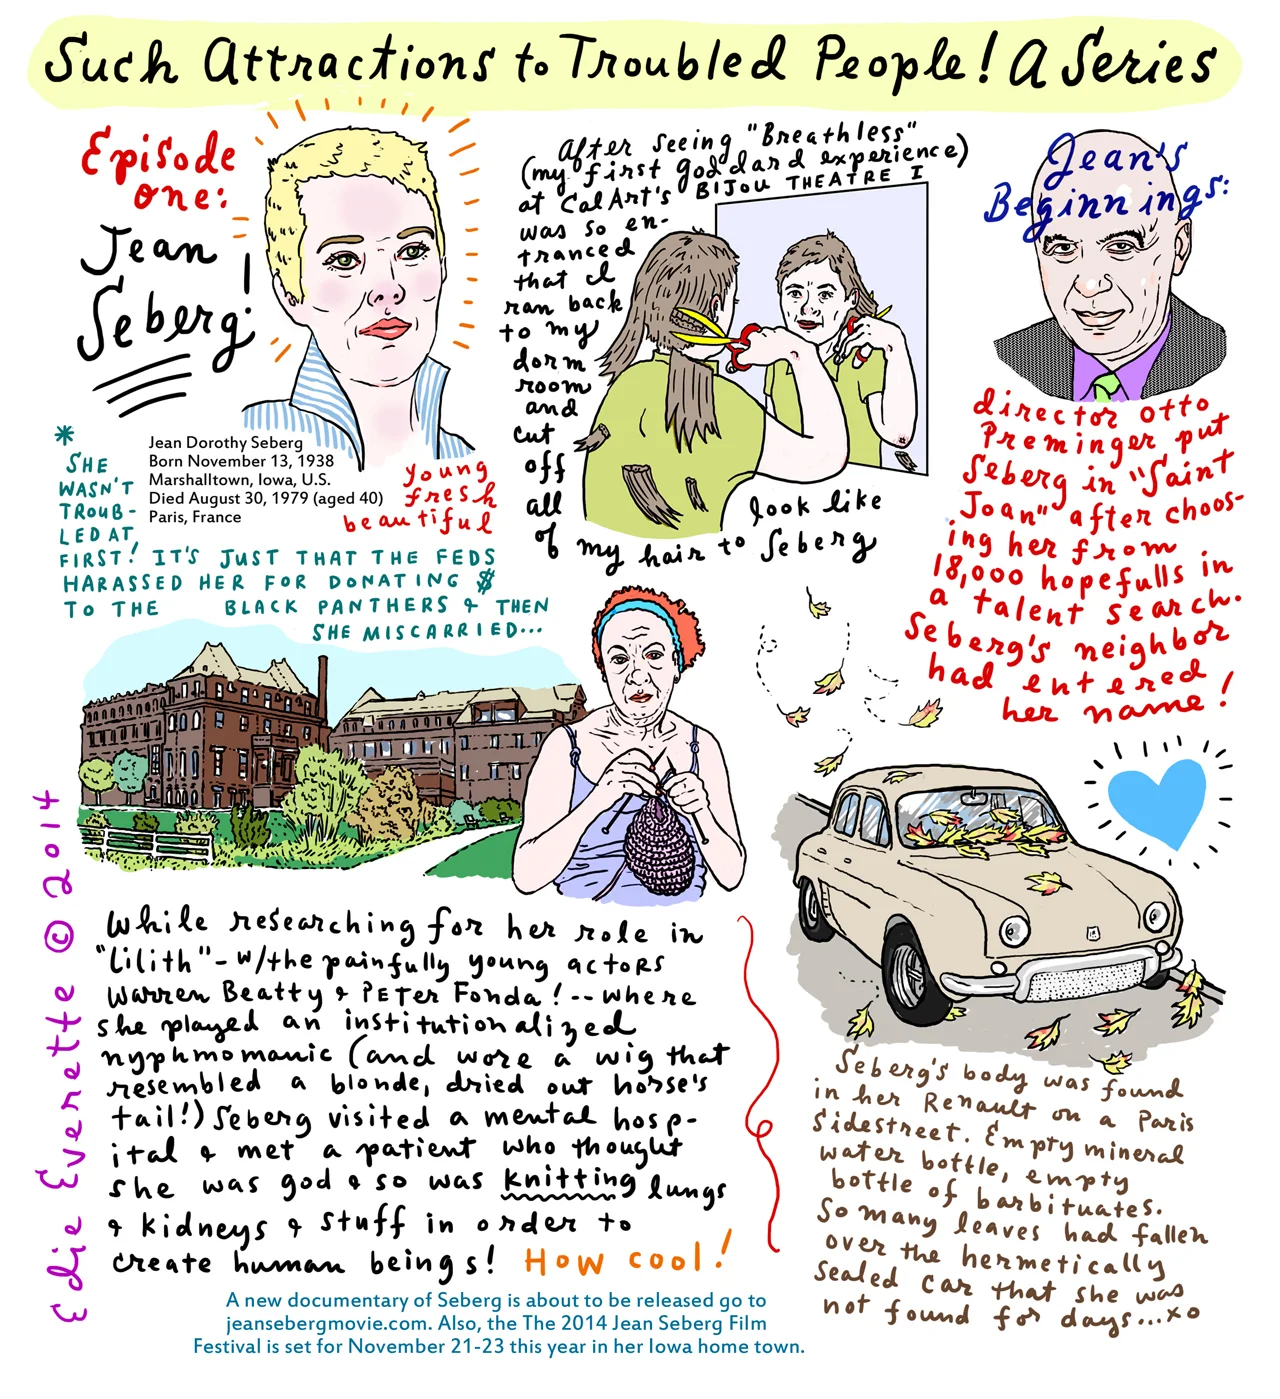 Such Attractions to Troubled People! A Series
Episode
one:
Jean
Seberg!
Jean Dorothy Seberg
Born November 13, 1938
Marshalltown, Iowa, U.S.
Died August 30, 1979 (aged 40)
Paris, France
young
fresh
beautiful
*
SHE
WASN'T
TROUB-
LED AT
FIRST! IT'S JUST THAT THE FEDS
HARASSED HER FOR DONATING $
TO THE BLACK PANTHERS & THEN
SHE MISCARRIED...
After seeing "Breathless"
(my first goddard experience)
at CalArt's BIJOU THEATRE I
was so en-
tranced
that I
ran back
to my
dorm
room
and
cut
off
all
of my hair to look like
Seberg
Jean's
Beginnings:
director Otto
Preminger put
Seberg in "Saint
Joan" after choos-
ing her from
18,000 hopefulls in
a talent search.
Seberg's neighbor
had entered
her name!
While researching for her role in
"Lilith" - w/the painfully young actors
Warren Beatty & PETER FONDA! -- where
she played an institutionalized
nyphmomanic (and wore a wig that
resembled a blonde, dried out horse's
tail!) Seberg visited a mental hosp-
ital & met a patient who thought
she was god & so was knitting lungs
& kidneys & stuff in order to
create human beings! How cool!
Seberg's body was found
in her Renault on a Paris
Sidestreet. Empty mineral
water bottle, empty
bottle of barbituates.
So many leaves had fallen
over the hermetically
sealed car that she was
not found for days...xo
A new documentary of Seberg is about to be released go to
jeansebergmovie.com. Also, the The 2014 Jean Seberg Film
Festival is set for November 21-23 this year in her Iowa home town.
Edie Everette © 2014